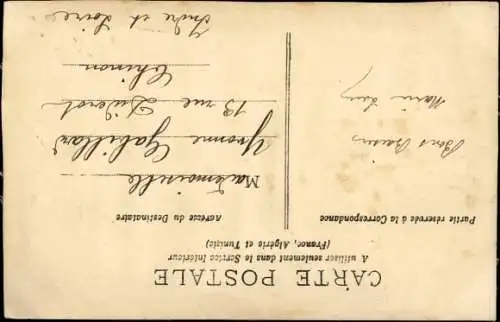 CARTE POSTALE
A utiliser seulement dans le Service Intérieur
(France, Algérie et Tunisie)
Partie réservée à la Correspondance
Adresse du Destinataire
Bons Baisers
Marie
Mademoiselle
Yvonne Gabillard
13 rue Diderot
Chinon
Indre et Loire